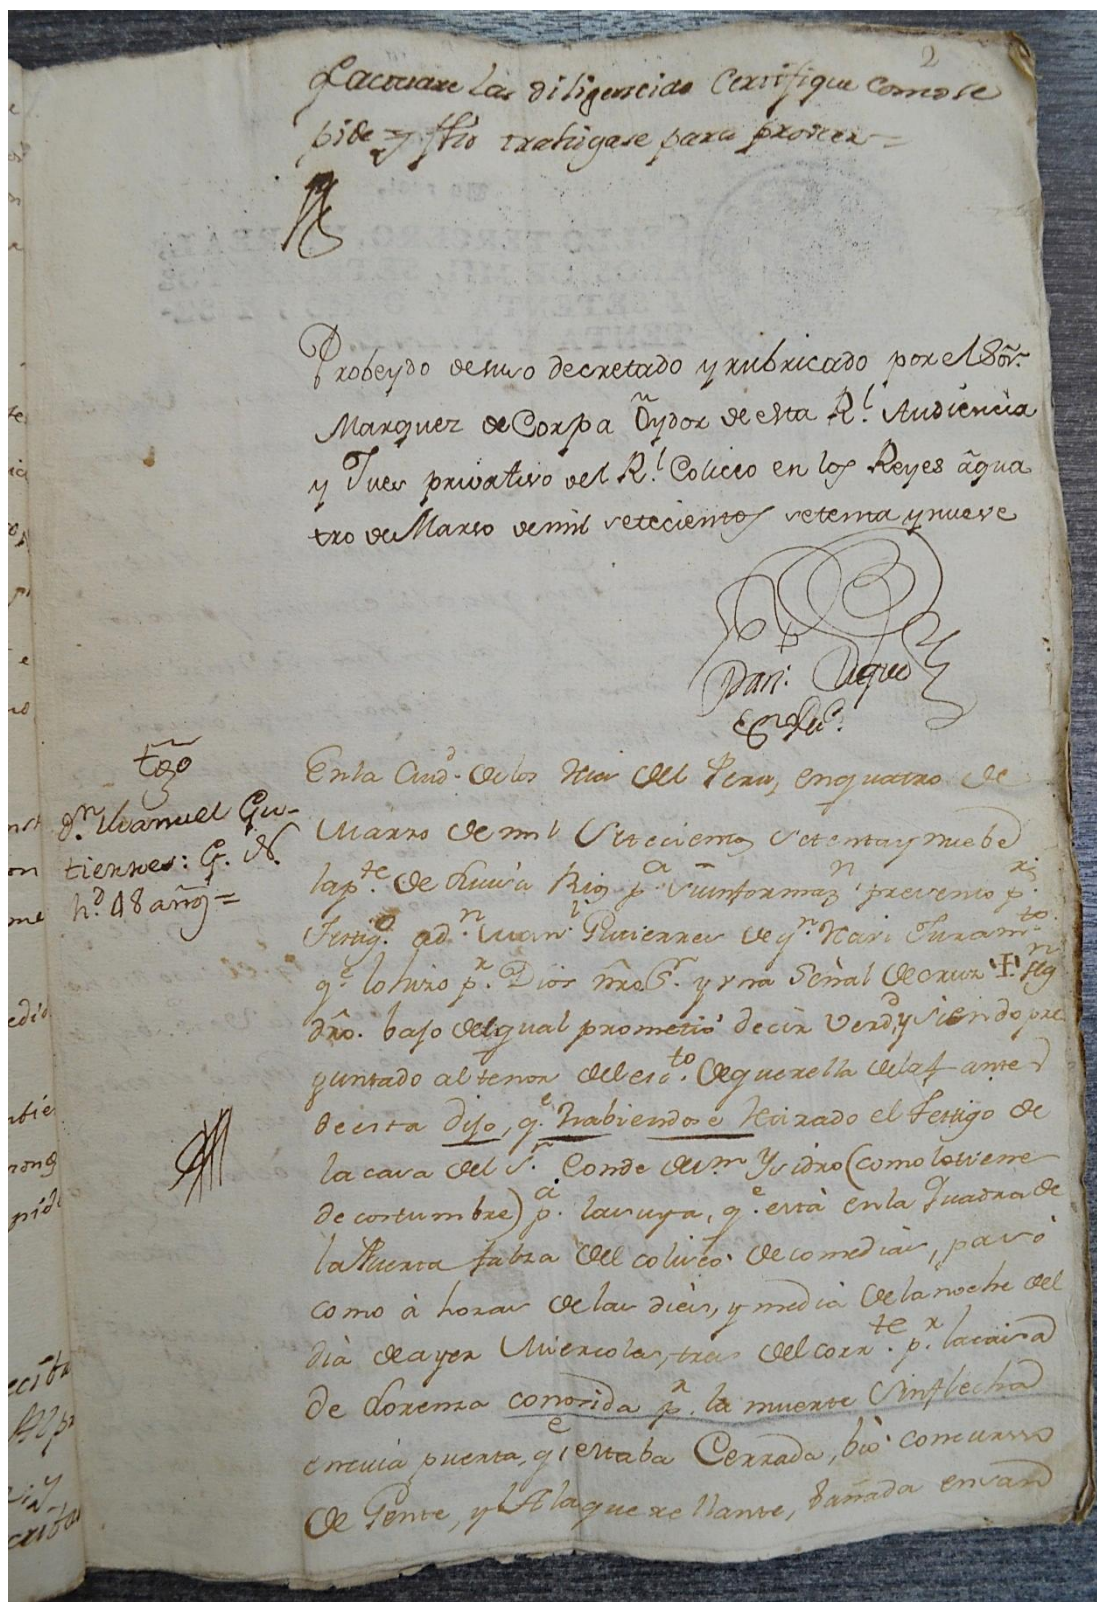 2
q.e actuare las diligencias Certifique como se
pide y fho trahigase para proveer =
Probeydo de suso decretado y rubricado por el Sõr.
Marquez de Corpa Oydor de esta R.l Audiencia
y Jues privativo del R.l Coliceo en los Reyes â qua
tro de Marso de mil setecientos setenta y nueve
tgo
d.n Manuel Gu-
tierres: G. N.
h.d 48 añs =
En la Ciud.d de los Reies del Peru, en quatro de
Marzo de mil Setecientos Setenta y nuebe
la p.te de Luisa p.a su informaz.n presento p.r
Testigo a d.n Man.l Gutierres de q.n Resivi Juram.to
q.e lo hizo p.r Dios nro S.r y vna Señal de cruz ✝ seg.n
dro. bajo del qual prometió decir verd.d y siendo pre
guntado al tenor del esc.to de querella de la f. ante
de esta dijo, q.e habiendose Retirado el Testigo de
la casa del S.r Conde de S.n Ysidro (como lo tiene
de costumbre) p.a la suya, q.e está en la Quadra de
la Puerta falza del coliseo de comedias, pasó
como á horas de las diéis, y media de la noche del
dia de ayer Miercoles, tres del corr.te p.r la casa
de Lorenza conosida p.r la muerte Sinflecha
en cuia puerta, q.e estaba Cerrada, bió concurso
de Gente, y A la querellante, bañada en san